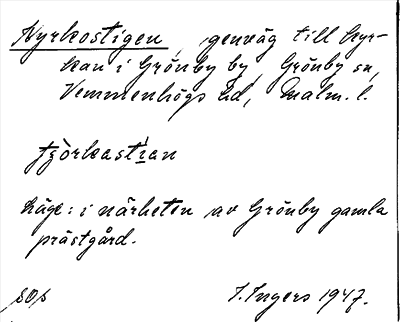 Kyrkostigen, genväg till kyr-
kan i Grönby by, Grönby sn,
Vemmenhögs hd, Malm. l.
Läge: i närheten av Grönby gamla
prästgård.
I. Ingers 1947.